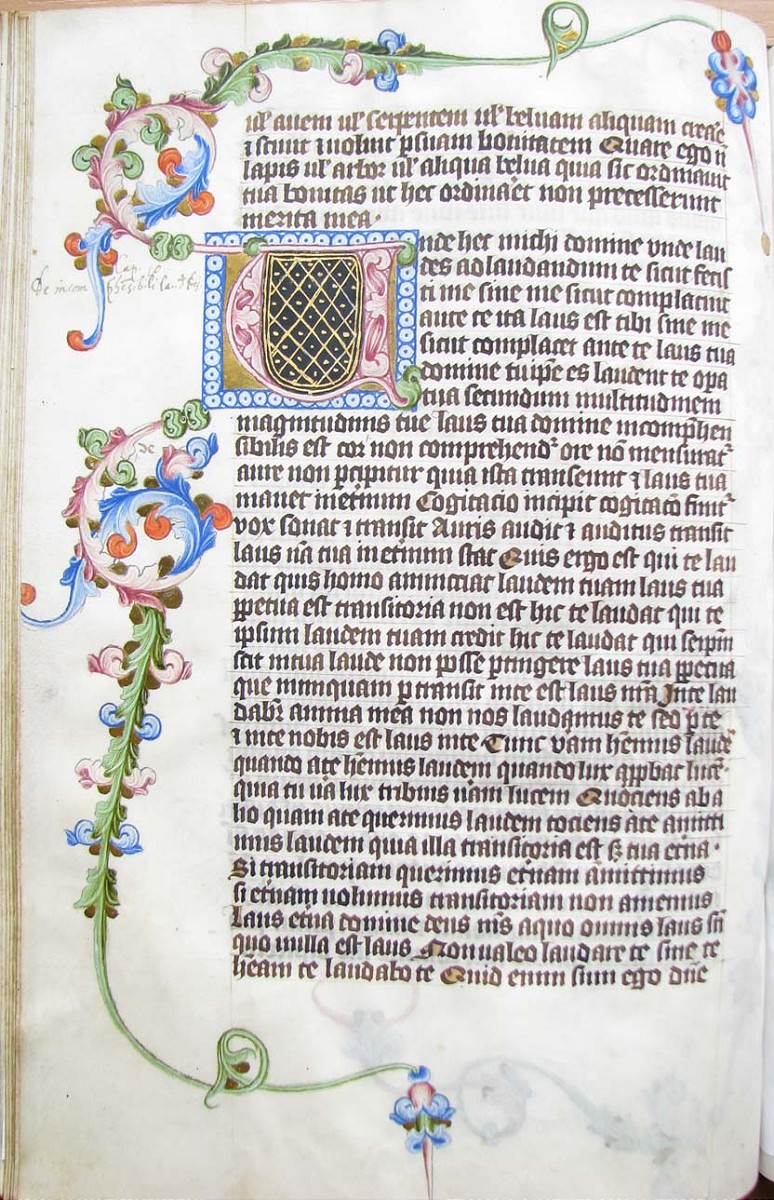 ul' auem ul' serpentem ul' beluam aliquam creare
⁊ sciuit ⁊ uoluit p suam bonitatem Quare ego nō
lapis ul' arbor ul' aliqua belua quia sic ordinauit
tua bonitas ut hec ordinaret non precesserunt
merita mea.
Unde hec michi domine vnde lau
des ad laudandum te sicut fecis
ti me sine me sicut complacuit
ante te ita laus est tibi sine me
sicut complacet ante te laus tua
domine tu ipse es laudent te opa
tua secundum multitudinem
magnitudinis tue laus tua domine incomphen
sibilis est cor' non comprehend' ore nō mensurat'
aure non pcipitur quia ista transeunt ⁊ laus tua
manet inetnum Cogitacio incipit cogitacō finit'
vox sonat ⁊ transit Auris audit ⁊ auditus transit
laus ū̄a tua inetnum stat Quis ergo est qui te lau
dat quis homo annunciat laudem tuam laus tua
ppetua est transitoria non est hic te laudat qui te
ipsum laudem tuam credit hic te laudat qui seipm
scit in tua laude non posse ptingere laus tua ppetua
que numquam ptransit in te est laus nr̄a In te lau
dabr̄ anima mea non nos laudamus te sed p te
⁊ in te nobis est laus in te Tunc vām hēmus laudē
quando a te hēmus laudem quando lux appbat lucē.
quia tu ūa lux tribuis ūam lucem Quociens aba
lio quam a te querimus laudem tociens a te amitti
mus laudem quia illa transitoria est sʒ tua etna.
Si transitoriam querimus etnam amittimus
si etnam uolumus transitoriam non amemus
Laus etna domine deus nr̄s a quo omnis laus sn̄
quo nulla est laus Non ualeo laudare te sine te
hēam te laudabo te Quid enim sum ego dn̄e
Cap.
De incomphēsibili laude
de